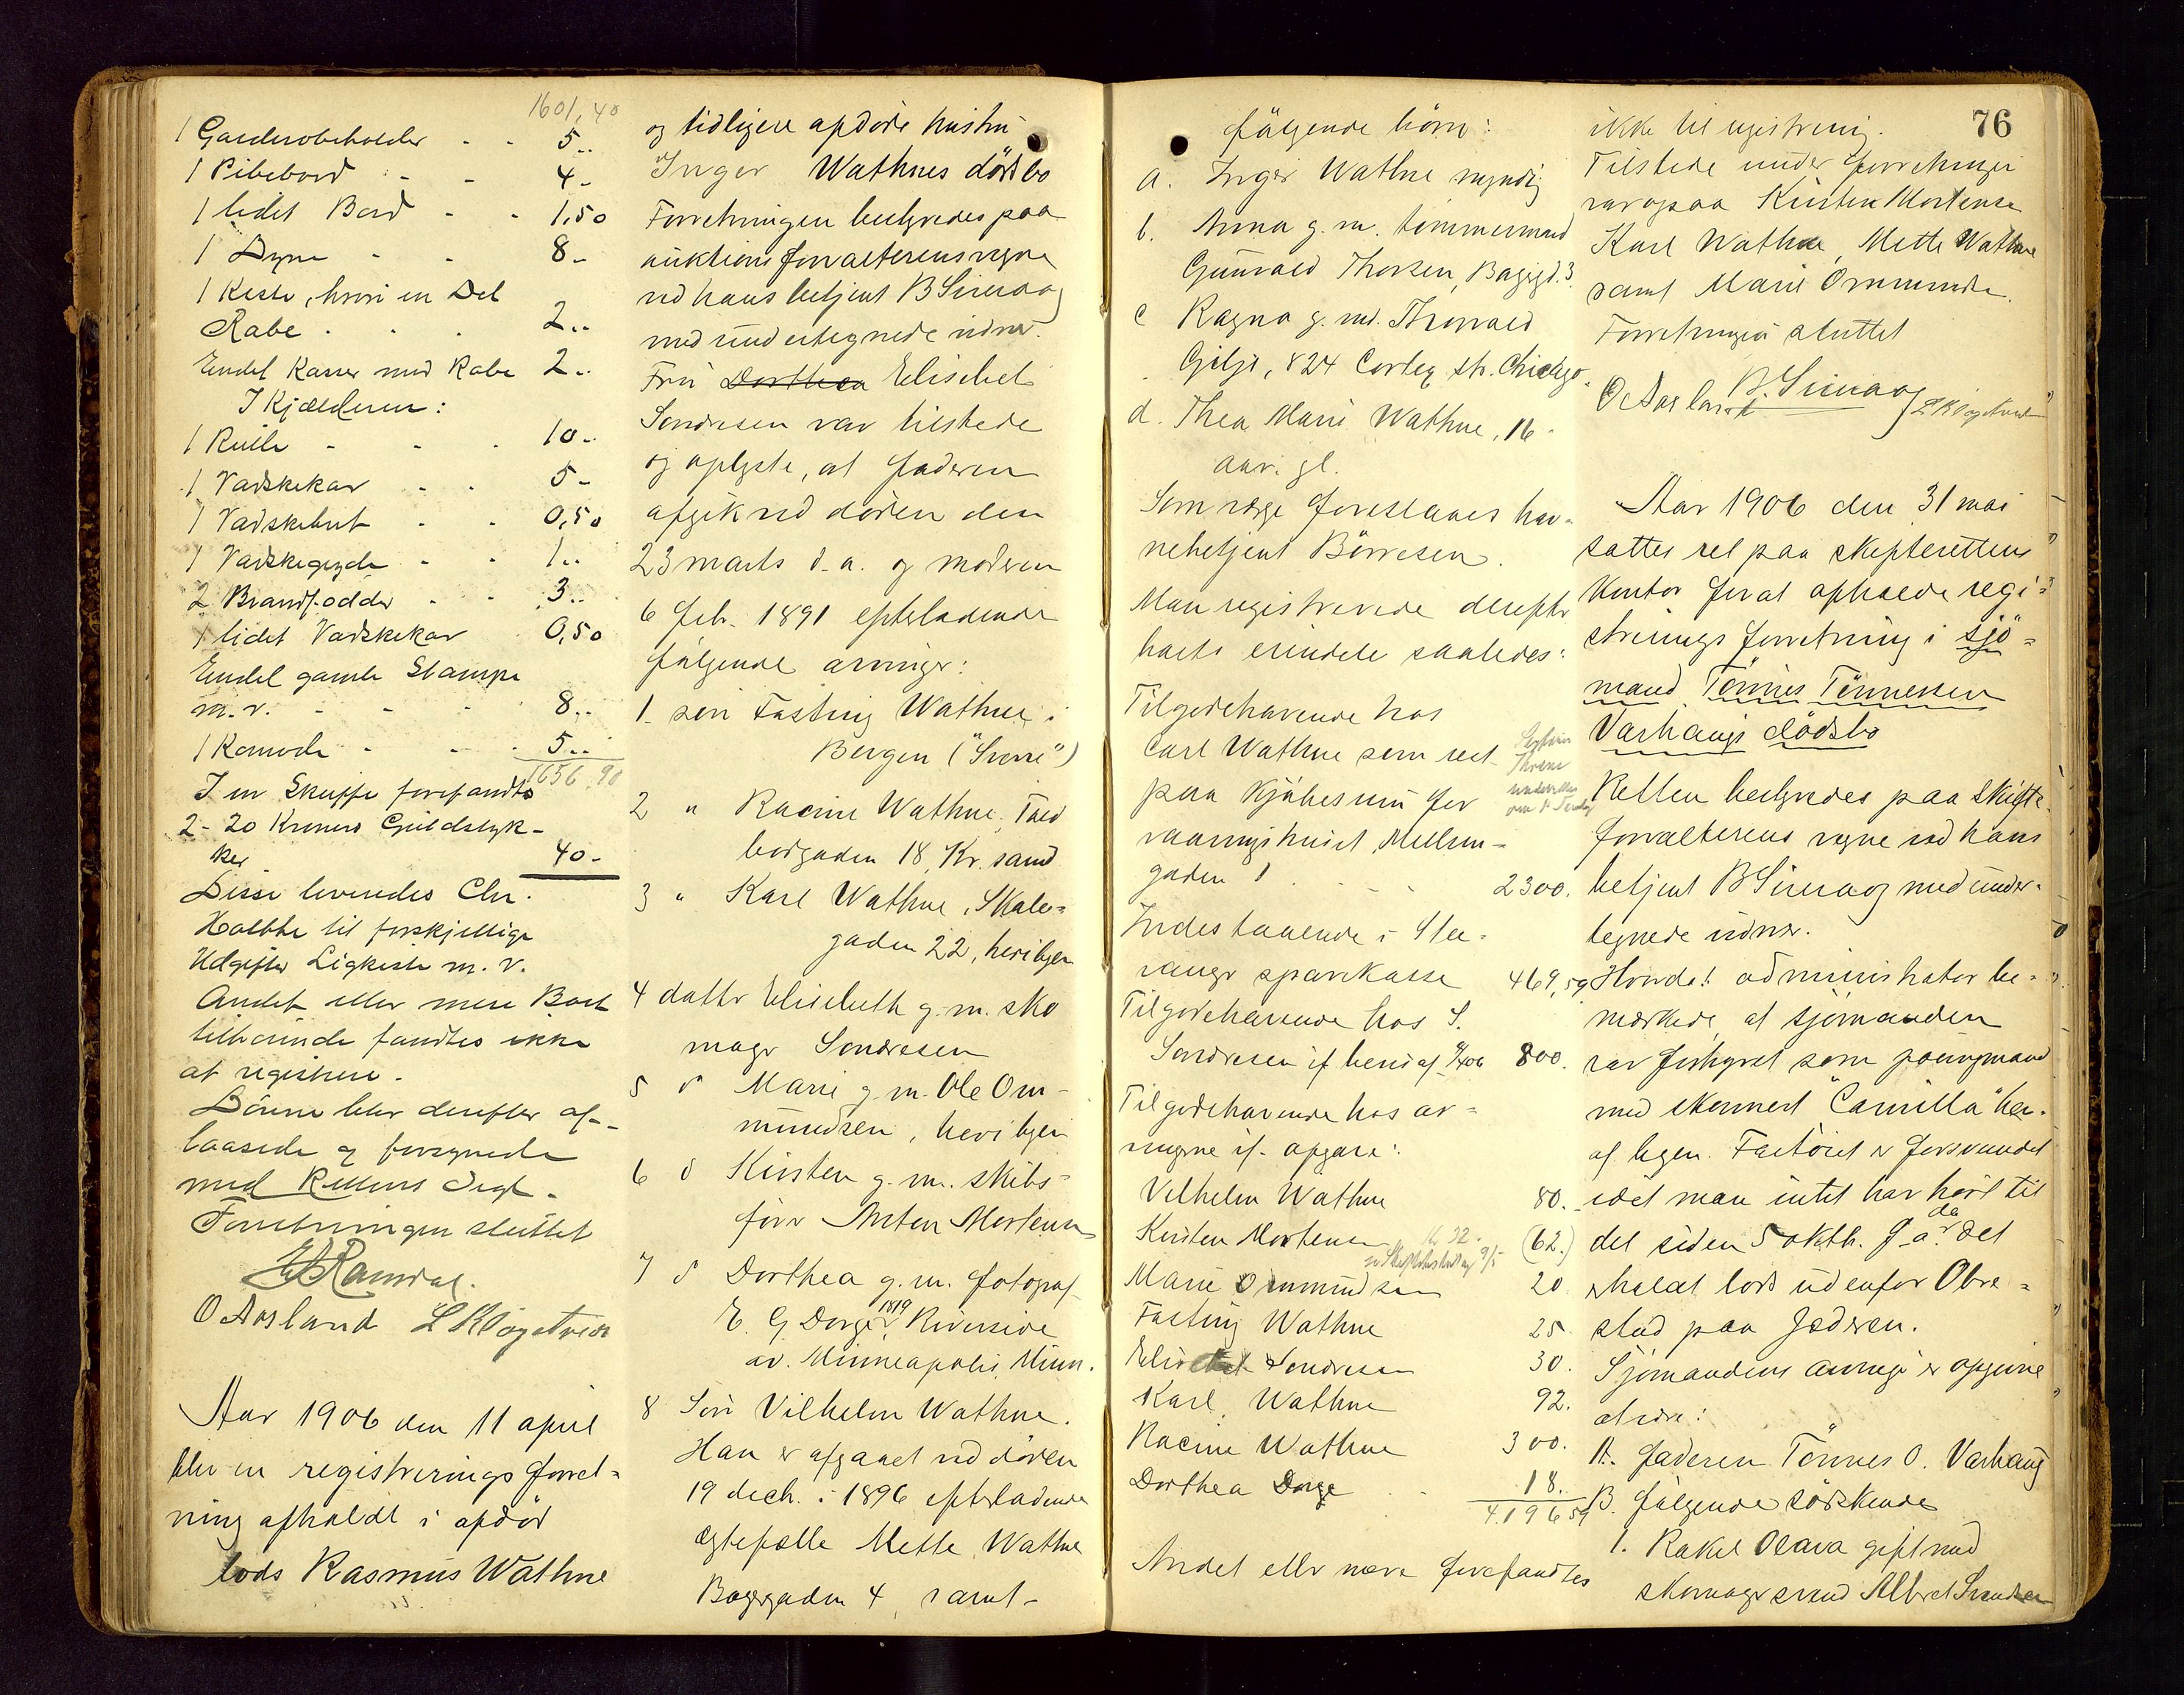 1601,40
1 Garderobeholder - - 5..
1 Pibebord - - 4-
1 lidet Bord - - 1,50
1 Dyne - - 8-
1 Kiste, hvori en Del
Rabe - - - 2..
Endel Kasser med Rabe 2..
I Kjælderen:
1 Rulle - - - 10..
1 Vadskekar - - 5-
1 Vadskebut - - 0,50
1 Vadskegryde - - 1..
2 Brandfodder - - 3..
1 lidet Vadskekar 0,50
Endel gamle Stamper
m.v. - - - 8..
1 Komode - - - 5..
1656,90
I en Skuffe forefandtes
2- 20 Kroners Guldstyk-
ker 40-
Disse leveredes Chr.
til forskjellige
Udgifter Ligkiste m.v.
Andet eller mere Boet
tilhørende fandtes ikke
at registrere.
Dørene blev derefter af-
laasede og forsynede
med Rettens Segl.
Forretningen sluttet
E Ramdal.
O Aasland L K Ogstveit
Aar 1906 den 11 april
blev en registrerings forret-
ning afholdt i afdød
lods Rasmus Wathne
og tidligere afdøde hustru
Inger Wathnes dødsbo
Forretningen bestyredes paa
auktionsforvalterens vegne
ved hans betjent B Simaog
med undertegnede vidner.
Fru Dorthea Elisabet
Sondresen var tilstede
og oplyste, at faderen
afgik ved døden den
23 marts d.a. og moderen
6 feb. 1891 efterladende
følgende arvinger:
1. søn Fasting Wathne i
Bergen ("Sverre")
2 " Racine Wathne, Told
bodgaden 18, Kr.sand
3 " Karl Wathne, Skole-
gaden 22, heri byen
4 dattr Elisebeth g.m. sko
mager Sondresen
5 d Marie g.m. Ole Om-
mundsen, heri byen
6 d Kirsten g.m. skibs-
fører Anton Mortensen
7 d Dorthea g.m. fotograf
E. G Dorge, 1819 Riverside
av. Minneapolis, Minn.
8 Søn Vilhelm Wathne.
Han er afgaaet ved døden
19 decb. i 1896 efterladende
egtefælle Mette Wathne
Bagergaden 4, samt-
følgende børn:
a. Inger Wathne myndig
b. Anna g.m. tømmermand
Gunvald Thorsen, Bagergd. 3.
c Ragna g.m. Thorvald
Gilje, 824 Cortez str. Chicago.
d. Thea Marie Wathne, 16
aar. gl.
Som verge foreslaaes hav-
nebetjent Börresen.
Man registrerede derefter
boets eiendele saaledes:
Tilgodehavende hos
Carl Wathne som rest
paa kjøbesum for
vaaningshuset Mellem-
gaden 1 - - - 2300.
Indestaaende i Sta-
vanger sparekasse 469,59
Tilgodehavende hos S.
Sondresen if. bevis af 9/4 06 800.
Tilgodehavende hos ar-
vingene if. opgave:
Vilhelm Wathne 80.
Kirsten Mortensen (62.)
Marie Ommundsen 20
Fasting Wathne 25.
Elisebet Sondresen 30.
Karl Wathne 92.
Racine Wathne 300.
Dorthea Dorge 18.
4196 59
Andet eller mere forefandtes
76
ikke til registrering.
Tilstede under forretningen
var ogsaa Kirsten Mortensen
Karl Wathne, Mette Wathne
samt Marie Ommundsen.
Forretningen sluttet
B. Simaog
O Aasland L K Ogstveit
Aar 1906 den 31 mai
sattes ret paa skifterettens
kontor for at afholde regi-
strerings forretning i sjø-
mand Tønnes Tønnesen
Varhaugs dødsbo
Retten bestyredes paa skifte-
forvalterens vegne ved hans
betjent B Simaog med under-
tegnede vidner.
administrator be-
mærkede, at sjømanden
var forhyret som
med skonnert "Camilla" her
af byen. Fartøiet er forsvundet
idet man intet har hørt til
det siden 5 oktb. f.a. da det
skulde lods udenfor Obre-
stad paa Jæderen.
Sjømandens arvinge er opgivne
at være:
A. faderen Tønnes O. Varhaug
B. følgende søskende
1. Rakel Olava gift med
skomagersvend Albret Svendsen